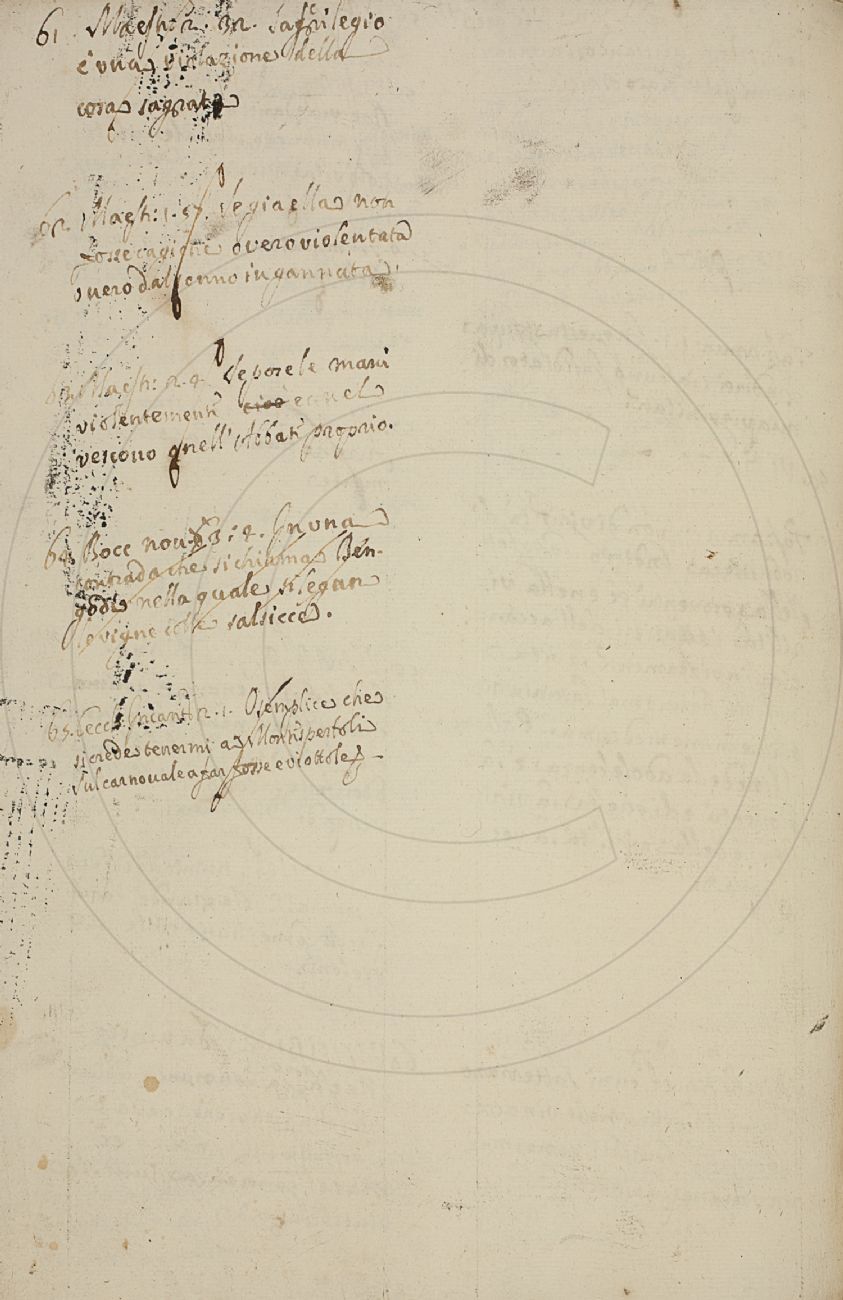 61. Maesh: 2. 32. Sacrilegio
è una violazione della
cosa sagrata
62. Maesh: 1. 57. Se gia ella non
fosse cagione overo violentata
overo dal senno ingannata.
63. Maesh: 2. 2. Se pose le mani
violentemente e nel
vescovo o nell'Abbate proprio.
64. Bocc nov. 3: 8. In una
contrada che si chiama Ben-
godi nella quale si legan
le vigne colle salsicce.
65. Cecch Incant: 2. 1. O semplice che
si crede tenermi a Montispertoli
sul carnovale a far fosse e viottole